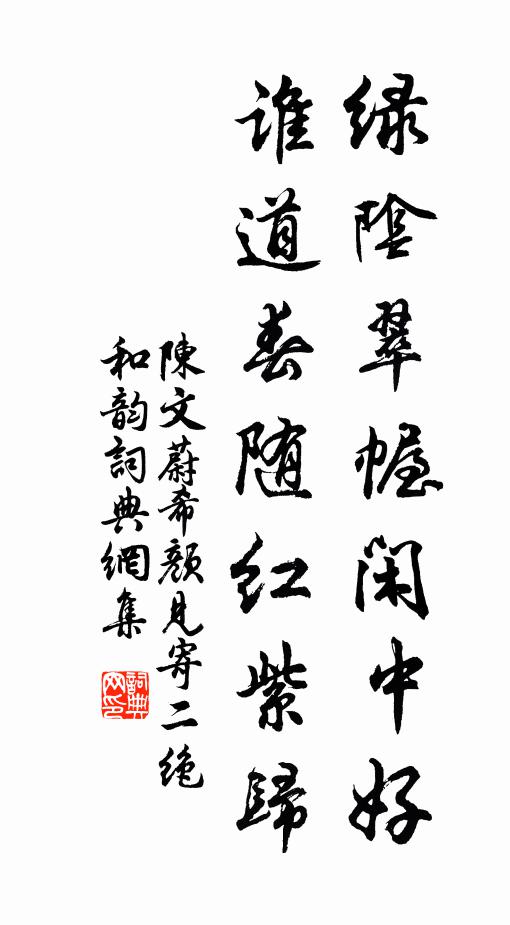 绿陰翠幄闲中好
谁道春随红紫歸
陳文蔚希顏見寄二绝
和韵詞典網集
詞典网印